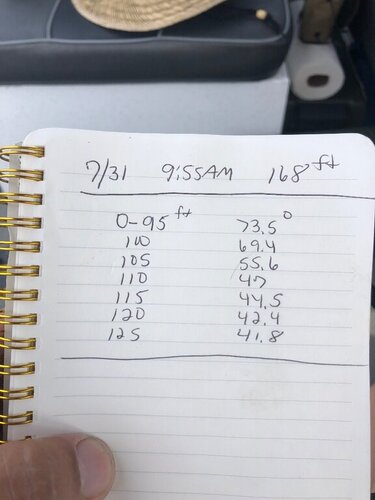 7/31 9:55AM 168 ft
0-95 ft 73.5°
100 69.4
105 55.6
110 47
115 44.5
120 42.4
125 41.8